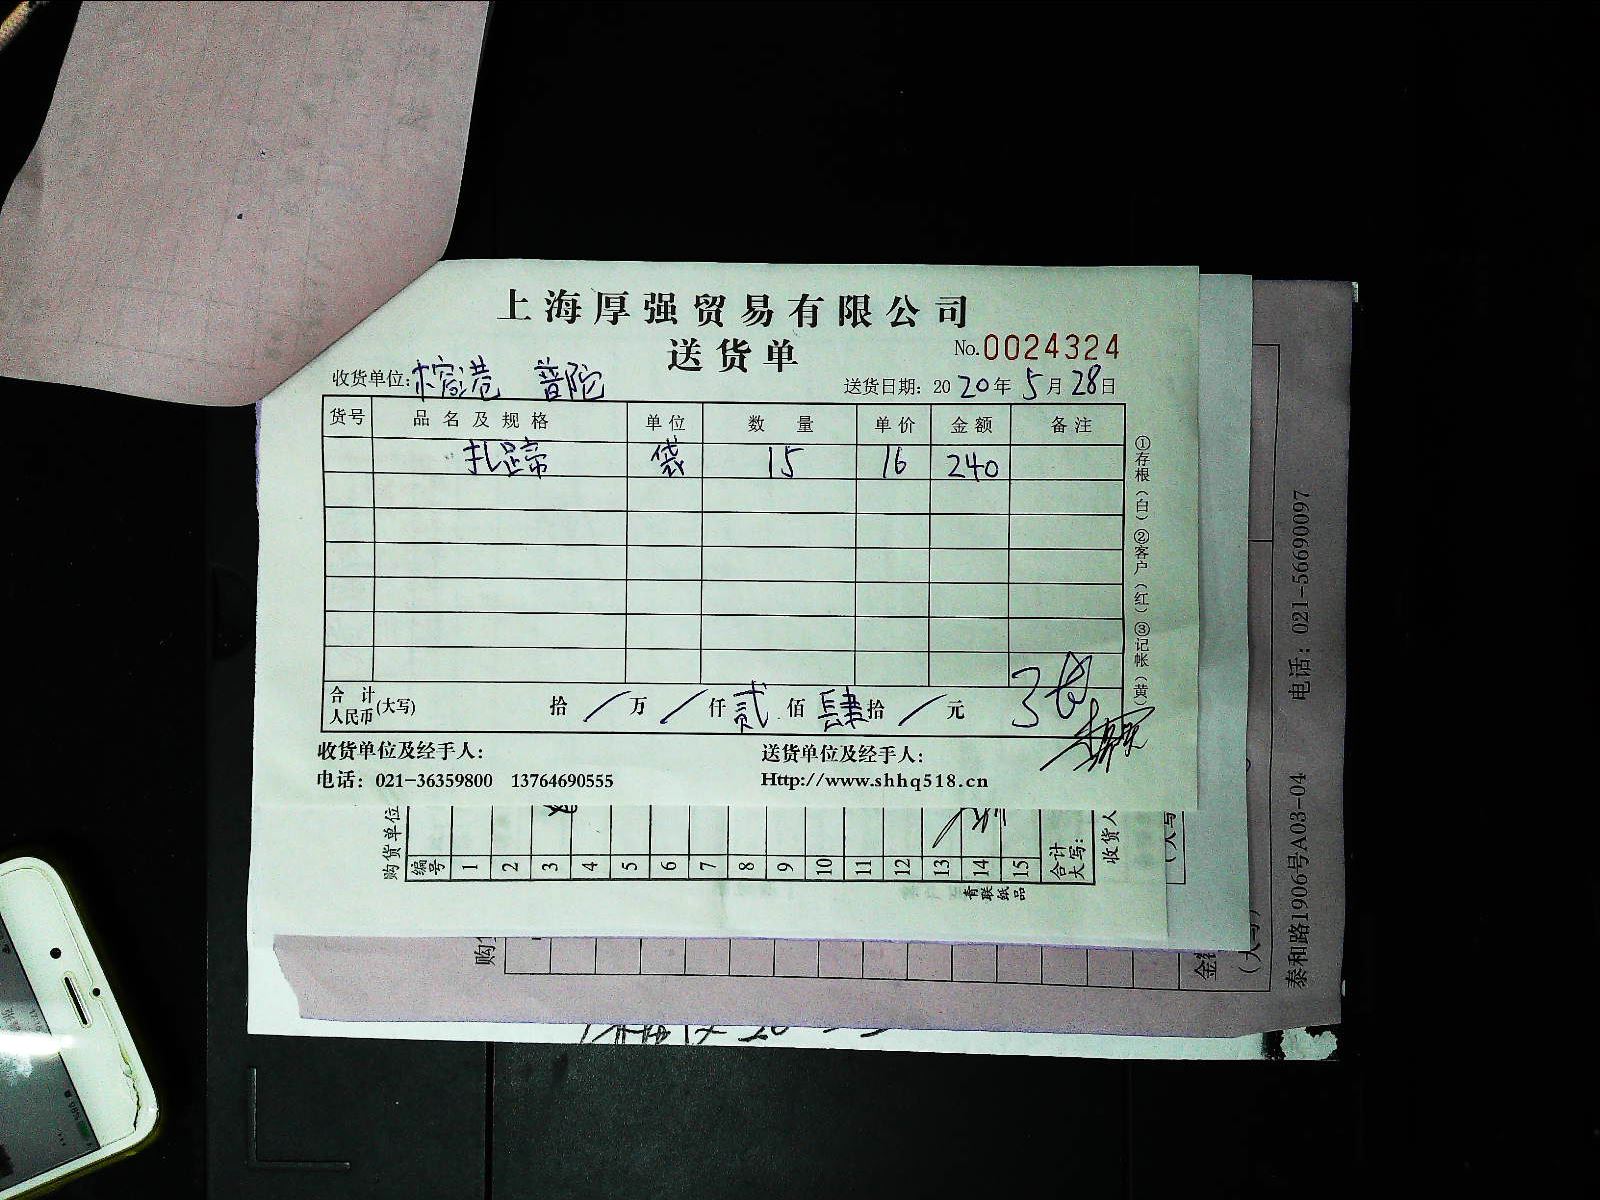 上海厚强贸易有限公司
送货单
No.0024324
收货单位:榕港 普陀
送货日期: 2020年5月28日
货号 品名及规格 单位 数量 单价 金额 备注
扎蹄 袋 15 16 240
合计人民币(大写) 拾/万/仟贰佰肆拾/元
收货单位及经手人:
送货单位及经手人:
电话: 021-36359800 13764690555
Http://www.shhq518.cn
①存根(白)②客户(红)③记帐(黄)
购货单位
编号 1 2 3 4 5 6 7 8 9 10 11 12 13 14 15
合计大写:
收货人
青联纸品
泰和路1906号A03-04 电话: 021-56690097